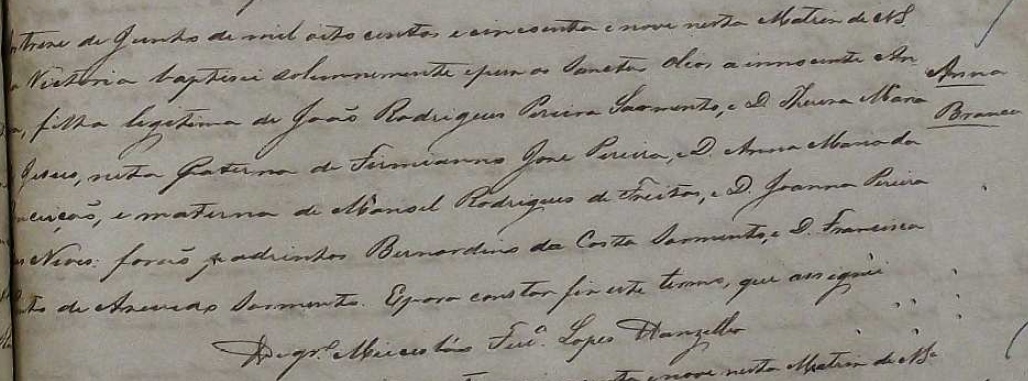 treze de Junho de mil oito centos e cincoenta e nove nesta Matriz de NS
Victoria baptisei solemnemente e puz os Sanctos Oleos a innocente An
na, filha legitima de João Rodrigues Pereira Sarmento, e D. Thereza Maria
Jesus, neta paterna de Firmianno José Pereira, e D. Anna Maria da
nceição, e materna de Manoel Rodrigues de Freitas, e D. Joanna Pereira
s Neves: forão padrinhos Bernardino da Costa Sarmento, e D. Francisca
de Azevedo Sarmento. E para constar fiz este termo, que assignei
Fer.ª Lopes
e nove nesta Matriz de NS
Anna
Branca